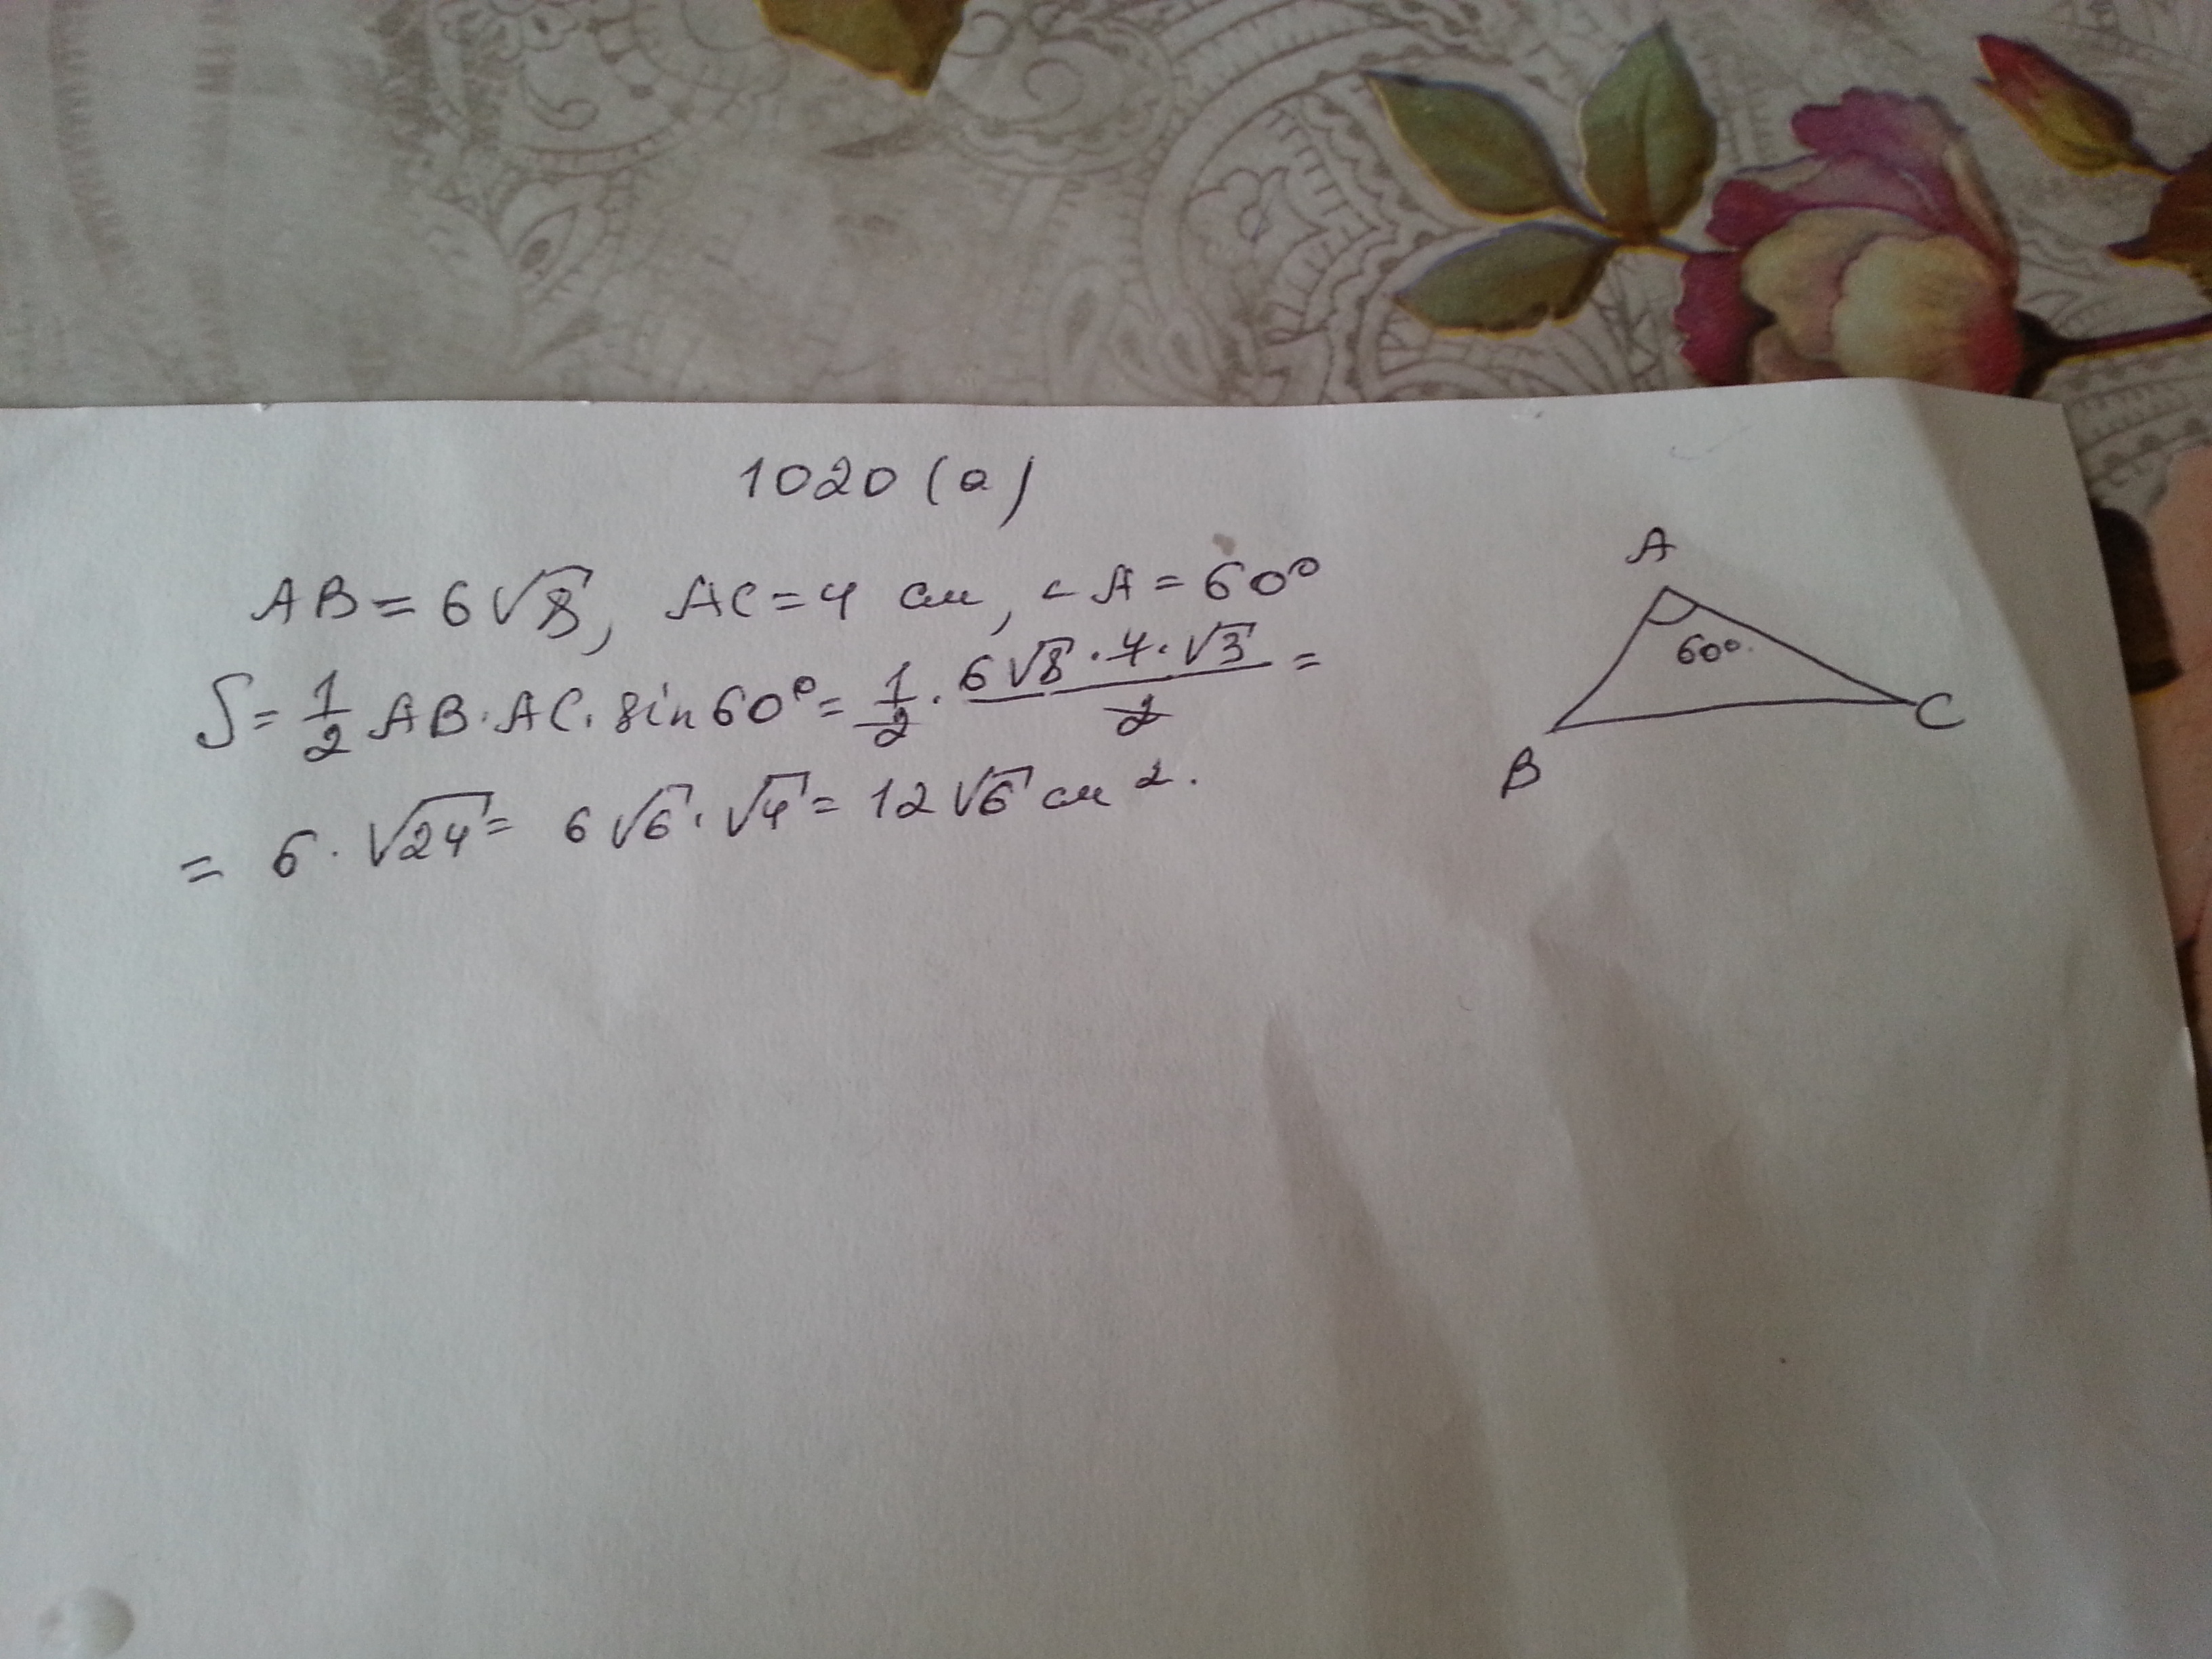 1020 (а)
AB = 6√8, AC = 4 см, ∠A = 60°
S = 1/2 AB · AC · sin 60° = 1/2 · (6√8 · 4 · √3)/2 =
= 6 · √24 = 6√6 · √4 = 12√6 см².
A
60°
B
C